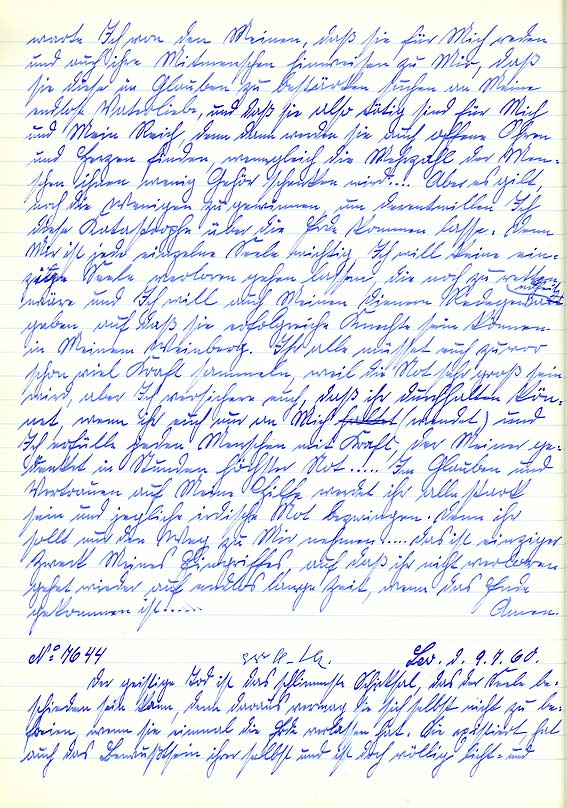 warte Ich von den Meinen, daß sie für Mich reden
und auch ihre Mitmenschen hinweisen zu Mir, daß
sie diese im Glauben zu bestärken suchen an Meine
endlose Vaterliebe, und daß sie also tätig sind für Mich
und Mein Reich, denn dann werden sie auch offene Ohren
und Herzen finden, wenngleich die Mehrzahl der Men-
schen ihnen wenig Gehör schenken wird.... Aber es gilt,
noch die Wenigen zu gewinnen, um derentwillen Ich
diese Katastrophe über die Erde kommen lasse. Denn
Mir ist jede einzelne Seele wichtig, Ich will keine ein-
zige Seele verloren gehen lassen, die noch zu retten
wäre und Ich will auch Meinen Dienern Redegewandtheit
geben, auf daß sie erfolgreiche Knechte sein können
in Meinem Weinberg. Ihr alle müsset euch zuvor
schon viel Kraft sammeln, weil die Not sehr groß sein
wird, aber Ich versichere euch, daß ihr durchhalten kön-
net, wenn ihr euch nur an Mich (wendet) und
Ich erfülle jeden Menschen mit Kraft, der Meiner ge-
denket in Stunden höchster Not..... Im Glauben und
Vertrauen auf Meine Hilfe werdet ihr alle stark
sein und jegliche irdische Not bezwingen. Denn ihr
sollt nur den Weg zu Mir nehmen.... das ist einziger
Zweck Meines Eingriffes, auf daß ihr nicht verloren
gehet wieder auf endlos lange Zeit, wenn das Ende
gekommen ist......
Amen.
No 7644
9.7.60.
Der geistige Tod ist das schlimmste Schicksal, das der Seele be-
schieden sein kann, denn daraus vermag sie sich selbst nicht zu be-
freien, wenn sie einmal die Erde verlassen hat. Sie existiert, hat
auch das Bewußtsein ihrer selbst und ist doch völlig licht- und